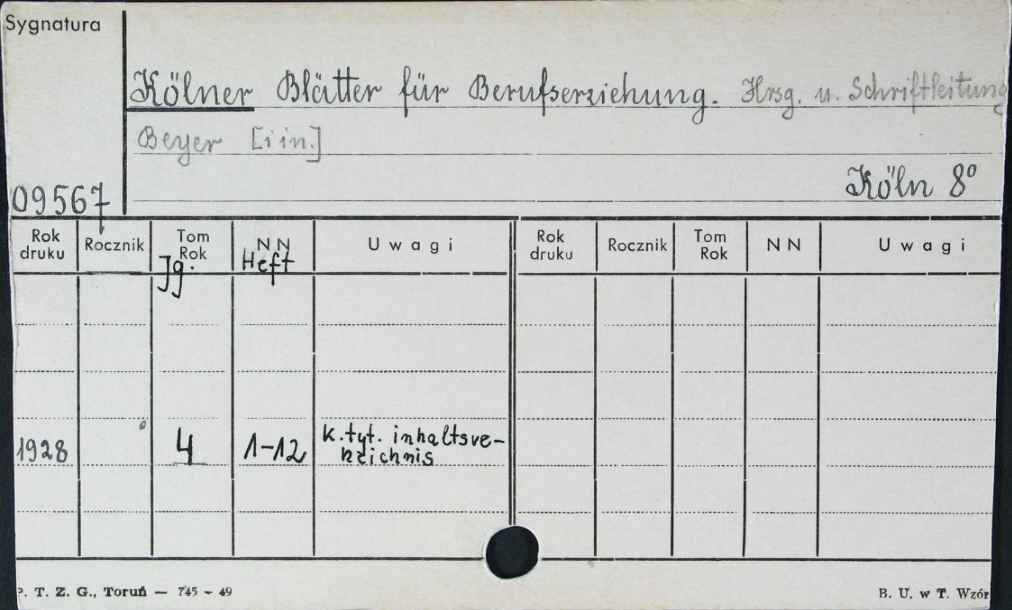 Sygnatura
Kölner Blätter für Berufserziehung. Hrsg. u. Schriftleitung
Beyer [i in.]
Köln 8°
09567
Rok druku Rocznik Tom Rok NN Uwagi Rok druku Rocznik Tom Rok NN Uwagi
Jg. Heft
1928 4 1-12 k.tyt. inhaltsve-
rzeichnis
P. T. Z. G., Toruń — 745 - 49 B. U. w T. Wzór